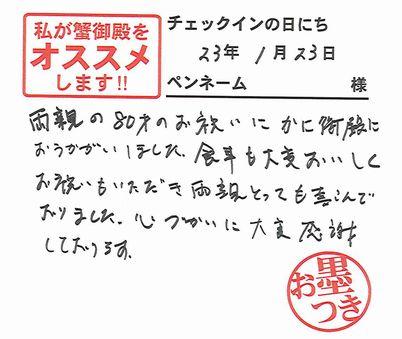 私が蟹御殿を
オススメ
します!!
チェックインの日にち
23年 1月23日
ペンネーム 様
両親の80才のお祝いにかに御殿に
おうかがいしました。食事も大変おいしく
お祝いもいただき両親とっても喜んで
おりました。心づかいに大変感謝
しております。
お墨つき